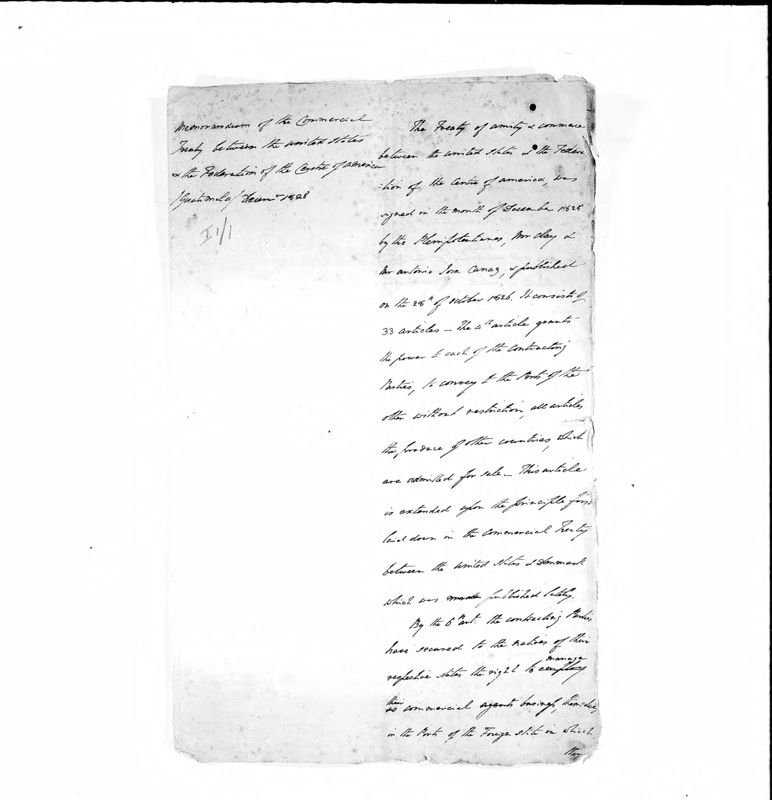 Memorandum of the Commercial
Treaty between the United States
& the Federation of the Centre of America
/Guatimala/ Decemr 1828
I 1/1
The Treaty of amity & commerce
between the United States & the Federa
-tion of the Centre of America, was
signed in the month of December 1825
by the Plenipotentiaries, Mr Clay &
Mr Antonio Jose Canaz, & published
on the 28th of October 1826. It consists of
33 articles – The 4th article grants
the power to each of the contracting
Parties, to convey to the Ports of the
other without restriction, all articles
the produce of other countries, which
are admitted for sale – This article
is extended upon the principle first
laid down in the Commercial Treaty
between the United States & Denmark
which was published lately.
By the 6th art. the contracting Parties
have secured to the natives of their
respective States the right to employ
manage
their
as commercial agents business, themselves
in the Ports of the Foreign State in which
they